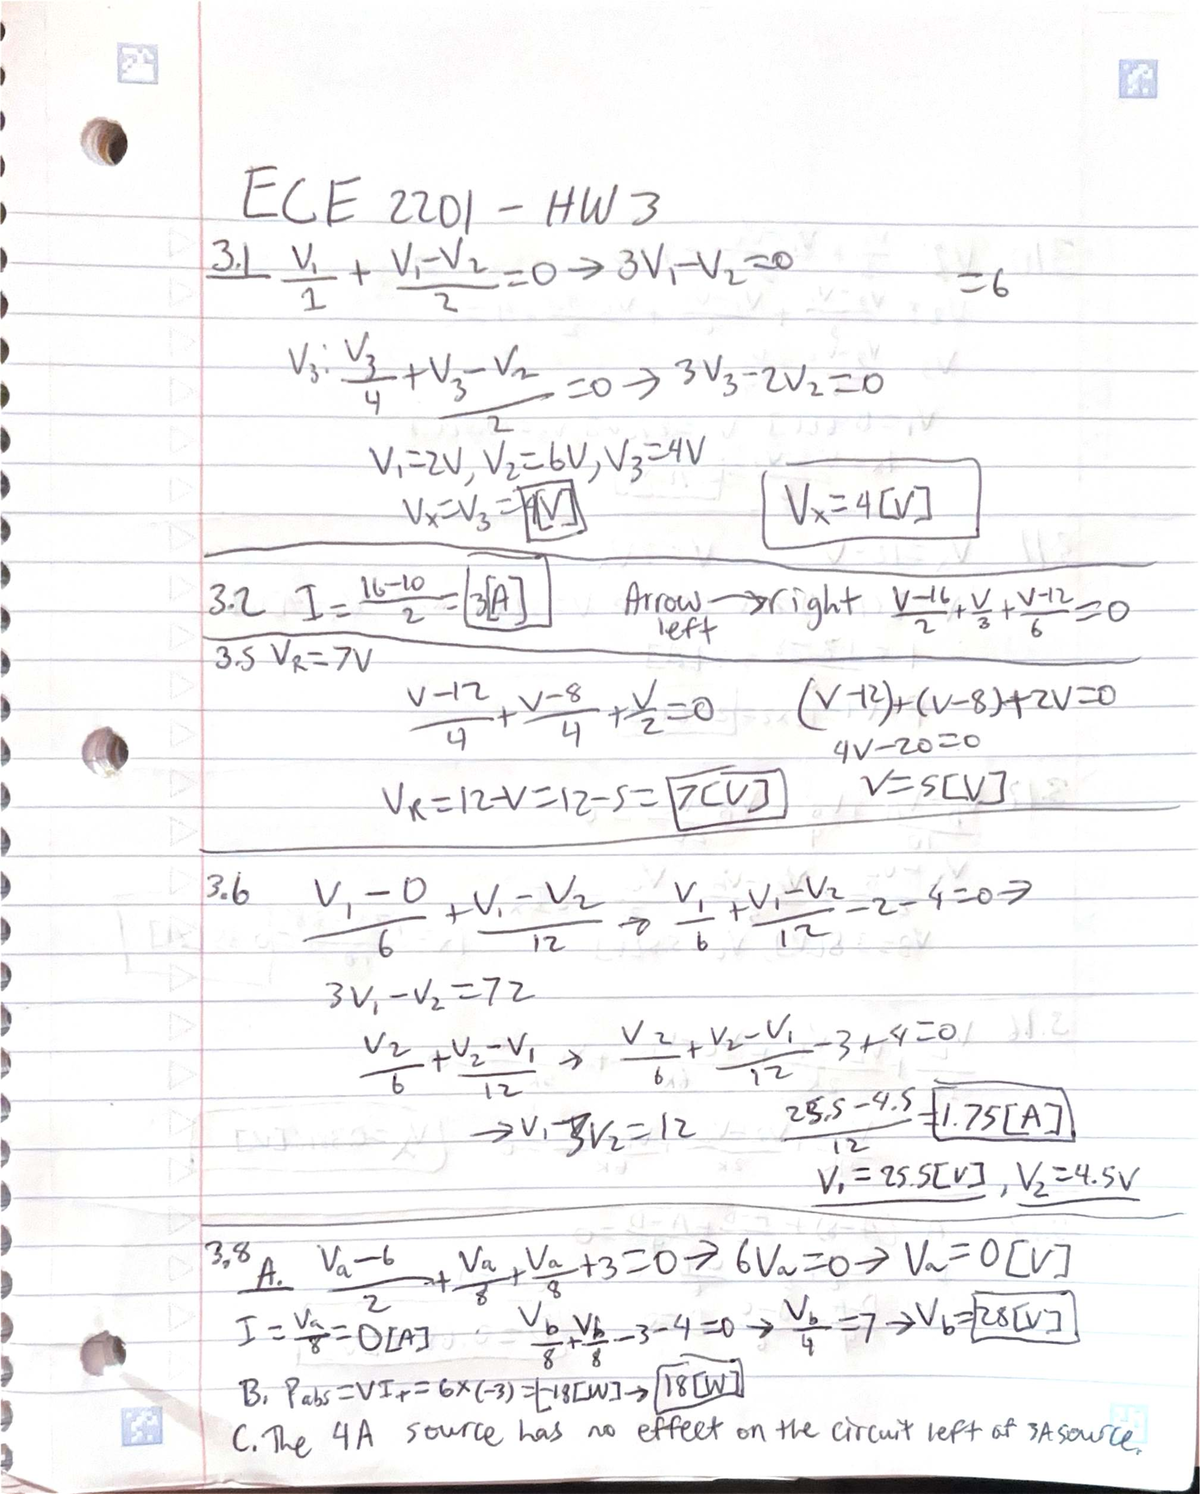 ECE 2201 - HW 3
3.1 V₁/1 + (V₁-V₂)/2 = 0 → 3V₁-V₂=0 =6
V₃: V₃/4 + (V₃-V₂)/2 = 0 → 3V₃-2V₂=0
V₁=2V, V₂=6V, V₃=4V
Vx=V₃=4[V] Vx=4[V]
3.2 I = (16-10)/2 = 3[A] Arrow left → right (V-16)/2 + V/3 + (V-12)/6 = 0
3.5 V_R=7V
(V-12)/4 + (V-8)/4 + V/2 = 0 (V-12)+(V-8)+2V=0
4V-20=0
V_R=12-V=12-5= 7[V] V=5[V]
3.6 (V₁-0)/6 + (V₁-V₂)/12 → V₁/6 + (V₁-V₂)/12 -2-4=0 →
3V₁-V₂=72
V₂/6 + (V₂-V₁)/12 → V₂/6 + (V₂-V₁)/12 -3+4=0
→ V₁-3V₂=12 (25.5-4.5)/12 = 1.75[A]
V₁=25.5[V], V₂=4.5V
3.8 A. (Va-6)/2 + Va/8 + Va/8 +3=0 → 6Va=0 → Va=0[V]
I = Va/8 = 0[A] Vb/8 + Vb/8 -3-4=0 → Vb/4 =7 → Vb=28[V]
B. Pabs=VI+=6×(-3)=-18[W] → 18[W]
C. The 4A source has no effect on the circuit left of 3A source.